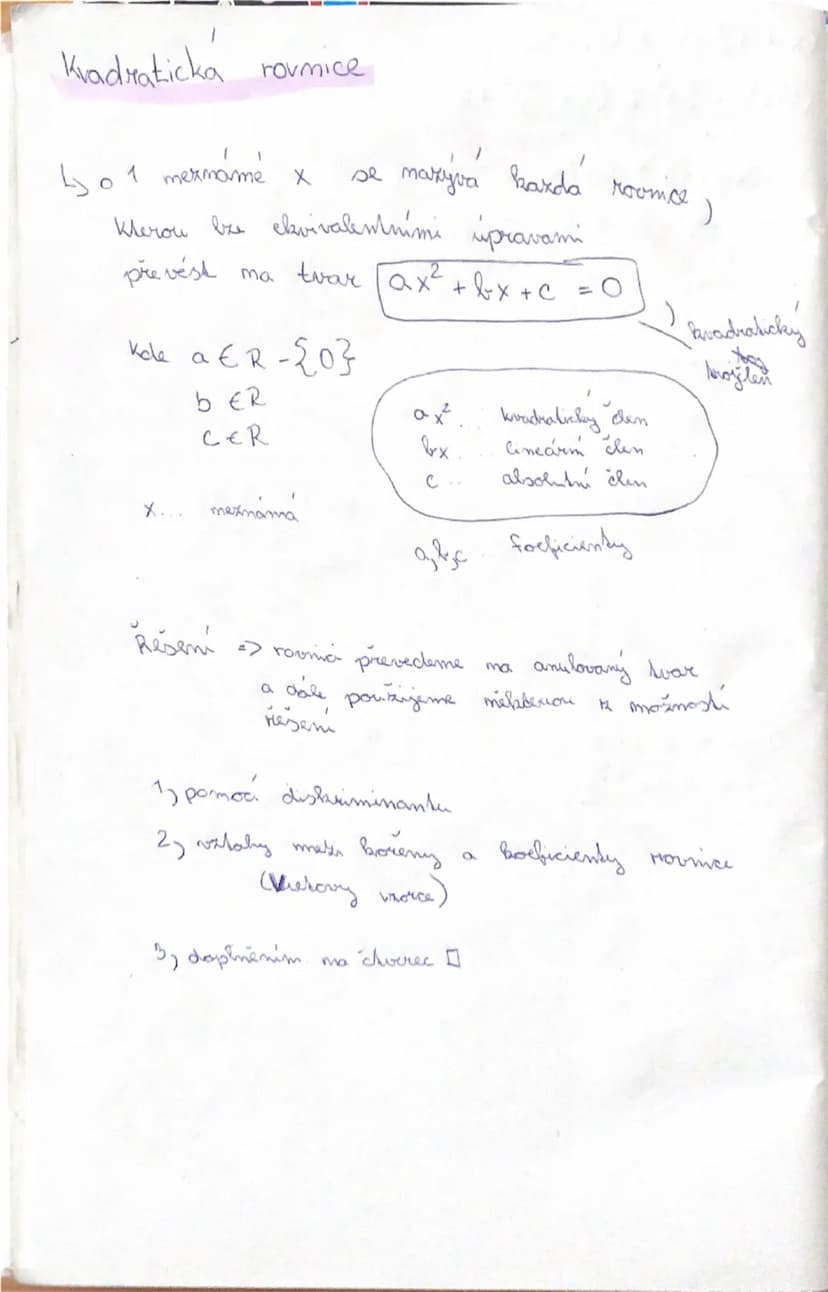 Kvadratická rovnice
↳ o 1 neznámé x se nazývá každá rovnice,
kterou lze ekvivalentními úpravami
převést na tvar ax² + bx + c = 0
kvadratický
trojčlen
Kde a ∈ R - {0}
b ∈ R
c ∈ R
ax² .. kvadratický člen
bx lineární člen
c .. absolutní člen
x... neznámá
a,b,c koeficienty
Řešení => rovnici převedeme na anulovaný tvar
a dále použijeme některou z možností
řešení
1, pomocí diskriminantu
2, vztahy mezi kořeny a koeficienty rovnice
(Vietovy vzorce)
3, doplněním na čtverec □